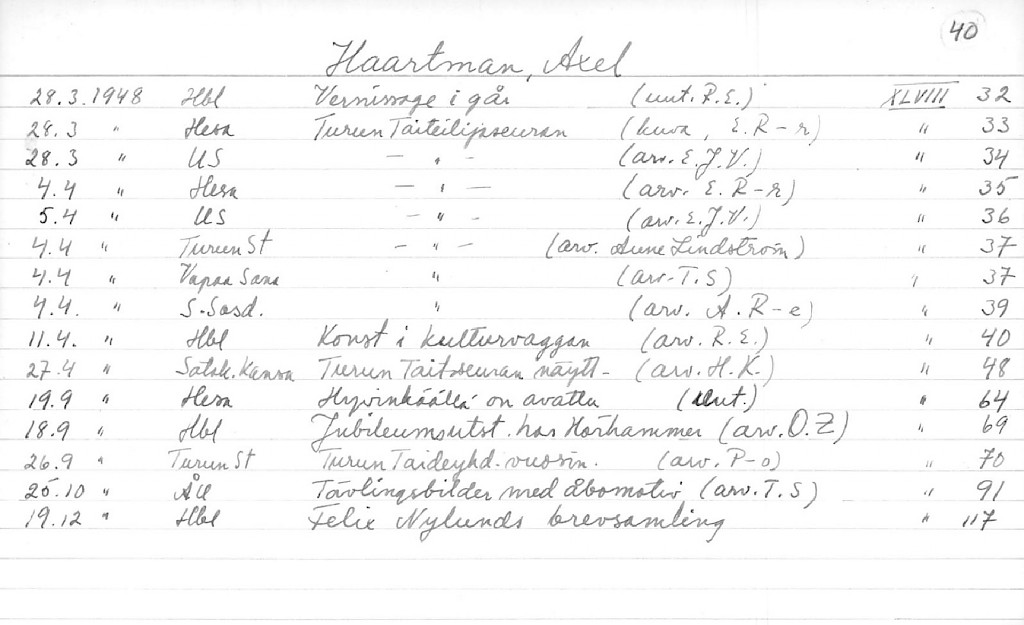 40
Haartman, Axel
28.3.1948 Hbl Vernissage i går (uut. R.E.) XLVIII 32
28.3 " Hesa Turun Taiteilijaseuran (kuva, E. R-r) " 33
28.3 " US — " — (arv. E.J.V.) " 34
4.4 " Hesa — " — (arv. E. R-r) " 35
5.4 " US — " — (arv. E.J.V.) " 36
4.4 " Turun St — " — (arv. Aune Lindström) " 37
4.4 " Vapaa Sana " (arv. T.S) " 37
4.4. " S-Sosd. " (arv. A. R-e) " 39
11.4. " Hbl Konst i kulturvaggan (arv. R.E.) " 40
27.4 " Satak. Kansa Turun Taitseuran näytt- (arv. H.K.) " 48
19.9 " Hesa Hyvinkäällä on avattu (uut.) " 64
18.9 " Hbl Jubileumsutst. hos Hörhammer (arv. O.Z) " 69
26.9 " Turun St Turun Taideyhd. vuosin. (arv. P-o) " 70
25.10 " ÅU Tävlingsbilder med åbomotiv (arv. T.S) " 91
19.12 " Hbl Felix Nylunds brevsamling " 117